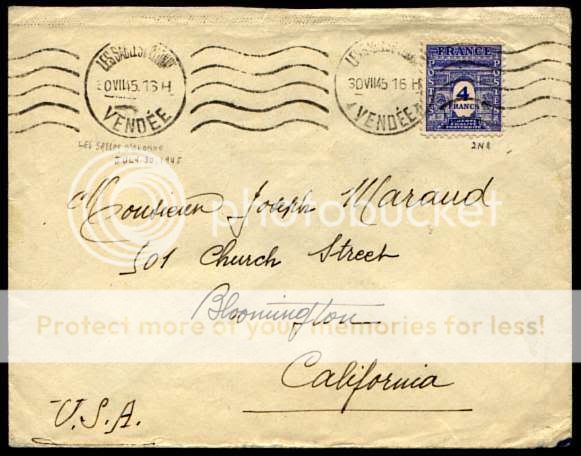 LES SABLES D'OLONNE
30 VII 45. 16 H
VENDÉE
LES SABLES D'OLONNE
30 VII 45. 16 H
VENDÉE
FRANCE
POSTES
POSTES
4
FRANCS
LES SABLES D'OLONNE
JULY 30, 1945
2N8
Monsieur Joseph Maraud
501 Church Street
Bloomington
California
U.S.A.
photobucket
Protect more of your memories for less!